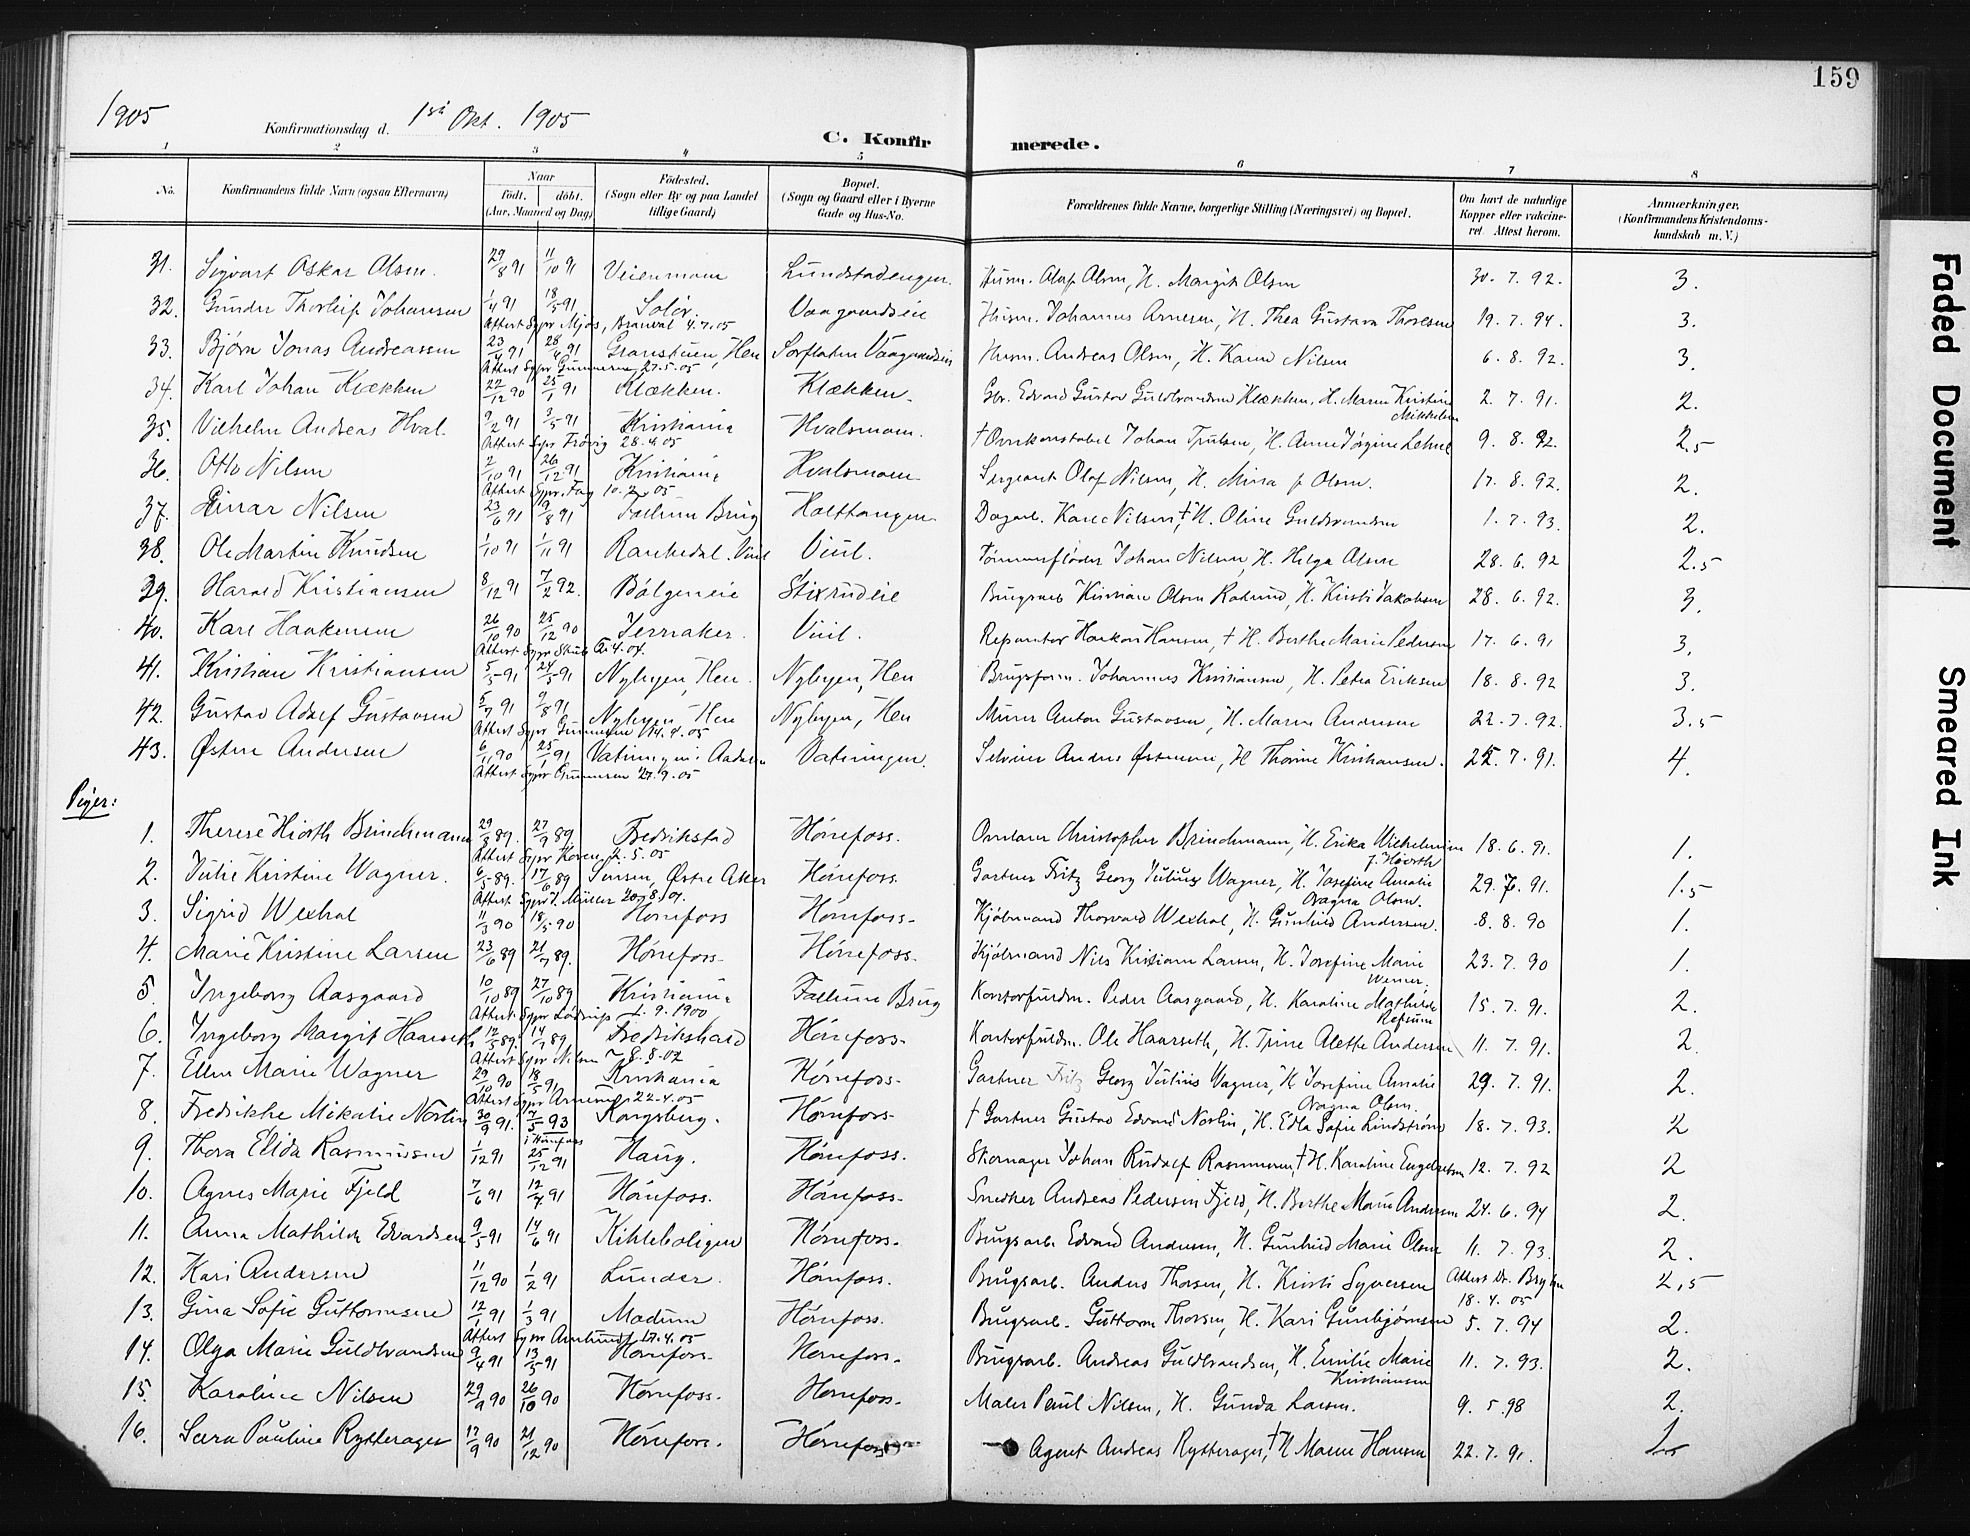 159
1905
Konfirmationsdag d. 1ste Okt. 1905
C. Konfirmerede.
1 2 3 4 5 6 7 8
No. Konfirmandens fulde Navn (ogsaa Efternavn) Naar født. døbt. (Aar, Maaned og Dag) Fødested. (Sogn eller By og paa Landet tillige Gaard) Bopæl. (Sogn og Gaard eller i Byerne Gade og Hus-No. Forældrenes fulde Navne, borgerlige Stilling (Næringsvei) og Bopæl. Om havt de naturlige Kopper eller vakcineret. Attest herom. Anmærkninger, (Konfirmandens Kristendomskundskab m. V.)
31. Sigvart Oskar Olsen. 29/8 91 11/10 91 Veienmoen Lundstadengen. Husm. Olaf Olsen, H. Margit Olsen 30. 7. 92. 3.
32. Gunder Thorleif Johansen 1/4 91 18/5 91 Solør. Vaagaardseie Husm. Johannes Arnesen, H. Thea Gustava Thoresen 19. 7. 94. 3.
Attest Sgpr Mjøs, Brandval 4.7.15
33. Bjørn Jonas Andreassen 23/4 91 28/4 91 Granstuen, Hen Husm. Andreas Olsen, H. Karen Nilsen 6. 8. 92. 3.
Attest Sgpr Gunnersen 27.5.05
34. Karl Johan Klækken 22/12 90 25/1 91 Klækken. Klækken. Gbr. Edvard Gustav Guldbrandsen Klækken, H. Maren Kristine Mikkelsen 2. 7. 91. 2.
35. Vilhelm Andreas Hval. 9/2 91 3/5 91 Kristiania Hvalsmoen. † Overkonstabel Johan Trulsen, H. Anne Jørgine 9. 8. 92. 2.5
Attest Sgpr Frøvig 28.4.05
36. Otto Nilsen 2/10 91 26/12 91 Kristiania Hvalsmoen Sergeant Olaf Nilsen, H. Mina f. Olsen. 17. 8. 92. 2.
Attest Sgpr. 05
37. Einar Nilsen 23/6 91 9/8 91 Follum Brug Dagarb. Karl Nilsen, † H. Oline Guldbrandsen 1. 7. 93. 2.
38. Ole Martin Knudsen 1/10 91 1/11 91 Viul Viul. Tømmerfløder Johan Nilsen, H. Helga Olsen 28. 6. 92 2.5
39. Harald Kristiansen 8/12 91 7/2 92. Bølgeneie Stixrudeie Brugsarb Kristian Olsen, H. Kristi Jakobsen 28. 6. 92. 3.
40. Karl Haakensen 26/10 90 25/12 90 Jernaker. Viul. Reparatør Haakon Hansen, † H. Berthe Marie Pedersen 17. 6. 91 3.
Attest Sgpr 4.04.
41. Kristian Kristiansen 5/5 91 24/5 91 Nybyen, Hen Nybyen, Hen Brugsform. Johannes Kristiansen, H. Petra Eriksen 18. 8. 92 3.
42. Gustav Adolf Gustavsen 5/7 91 9/8 91 Nybyen, Hen Nybyen, Hen Murer Anton Gustavsen, H. Maren Andersen 22. 7. 92. 3.5
Attest Sgpr Gunnersen 4.05
43. Østen Andersen 6/11 90 25/1 91 Vatningen i Aadalen Vatningen. Selveier Anders Østensen, H. Thorine Kristiansen. 22. 7. 91. 4.
Attest Sgpr Gunnersen 27.9.05
Piger:
1. Therese Hiorth Brinchmann 29/8 89. 27/9 89. Fredrikstad Hønefoss. Overlærer Christopher Brinchmann, H. Erika Wilhelmine f. Hiorth 18. 6. 91. 1.
Attest Sgpr Koren 2.5.05
2. Julie Kristine Wagner. 6/5 89. 17/6 89 Sinsen, Østre Aker Hønefoss. Gartner Fritz Georg Julius Wagner, H. Josefine Amalie Ovagna Olsen. 29. 7. 91. 1.5
Attest Sgpr J. Müller
3. Sigrid Wexhal 11/3 90 18/5 90 Hønefoss Hønefoss. Kjøbmand Thorvald Wexhal, H. Gunhild Andersen. 8. 8. 90 1.
4. Marie Kristine Larsen 23/6 89 21/7 89. Hønefoss. Hønefoss. Kjøbmand Nils Kristian Larsen, H. Josefine Marie 23. 7. 90 1.
5. Ingeborg Aasgaard 10/10 89 27/10 89 Kristiania Follum Brug Kontorfuldm. Peder Aasgaard, H. Karoline Mathilde Refsum 15. 7. 91. 2.
Attest Sgpr 9. 1900
6. Ingeborg Margit Haarseth 12/5 89. 14/7 89. Fredrikshald Hønefoss. Kontorfuldm. Ole Haarseth, H. Trine Alette Andersen 11. 7. 91. 2.
Attest Sgpr Nilsen 8.8.02
7. Ellen Marie Wagner 29/10 90 18/5 91 Kristiania Hønefoss. Gartner Fritz Georg Julius Wagner, H. Josefine Amalie Ovagna Olsen. 29. 7. 91. 2.
Attest Sgpr 22.4.05
8. Fredrikke Mikalie Norlin 30/9 91. 7/5 93 Kongsberg. Hønefoss. † Gartner Gustav Edvard Norlin, H. Edla Sofie Lindstrøm 18. 7. 93. 2
i Hønefoss
9. Thora Elida Rasmussen 1/12 91 25/12 91 Haug. Hønefoss. Skomager Johan Rudolf Rasmussen, † H. Karoline Engebretsen 12. 7. 92 2
10. Agnes Marie Fjeld 7/6 91 12/4 91 Hønefoss. Hønefoss. Snedker Andreas Pedersen Fjeld, H. Berthe Marie Andersen 24. 6. 94 2.
11. Anna Mathilde Edvardsen 9/5 91 14/6 91 Hønefoss. Brugsarb. Edvard Andersen, H. Gunhild Marie Olsen 11. 7. 93. 2.
12. Kari Andersen 11/12 90 1/2 91 Lunder. Hønefoss. Brugsarb. Anders Thorsen, H. Kristi Syversen Attest Dr. Bryhn 18.4.05 2,5
13. Gina Sofie Guttormsen 12/1 91 1/3 91 Modum Hønefoss. Brugsarb. Guttorm Thorsen, H. Kari Gunbjørnsen 5. 7. 94 2.
Attest Sgpr 17.4.05
14. Olga Marie Guldbrandsen 9/4 91 13/5 91 Hønefoss. Hønefoss. Brugsarb. Andreas Guldbrandsen, H. Emilie Marie Kristiansen 11. 7. 93. 2.
15. Karoline Nilsen 29/9 90 26/10 90 Hønefoss. Hønefoss. Maler Paul Nilsen, H. Gunda Larsen. 9. 5. 98 2.
16. Sara Pauline Rytterager 17/9 90 21/12 90 Hønefoss. Hønefoss Agent Andreas Rytterager, † H Maren Hansen 22. 7. 91.
Faded Document
Smeared Ink